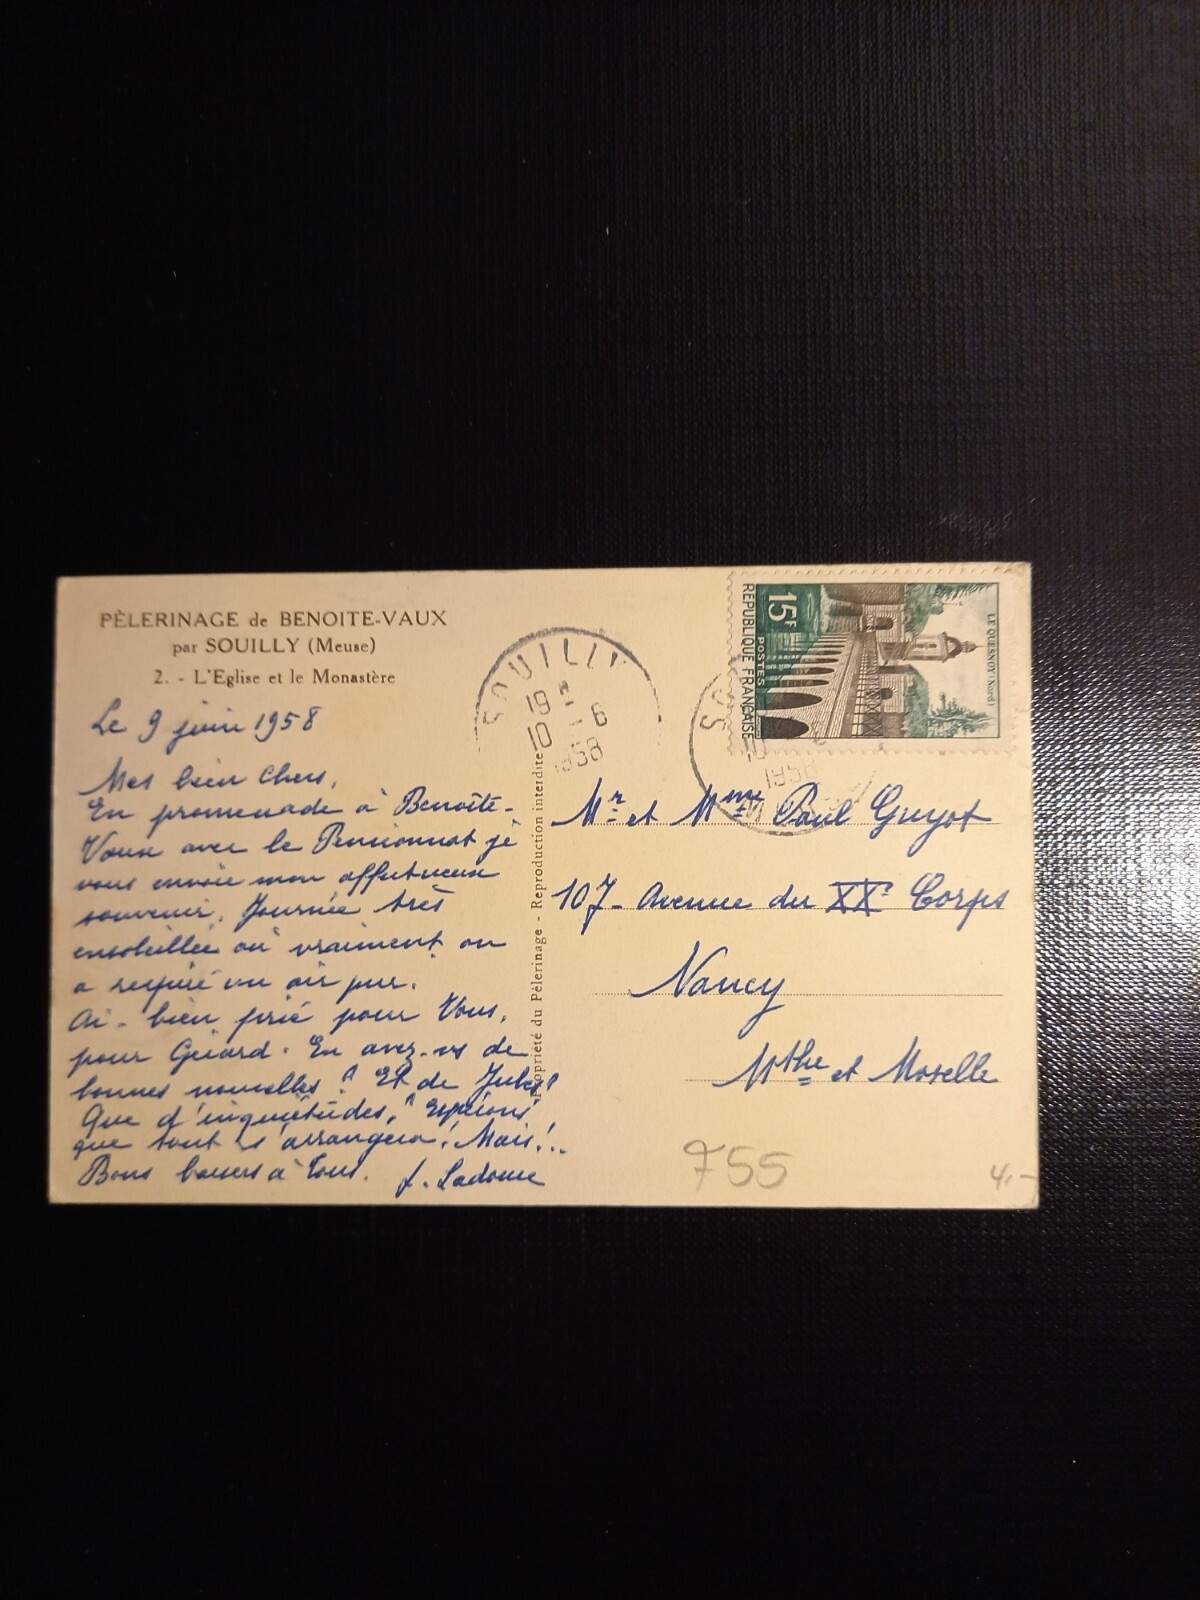 PÈLERINAGE de BENOITE-VAUX
par SOUILLY (Meuse)
2. - L'Eglise et le Monastère
Le 9 juin 1958
Mes bien Chers,
En promenade à Benoîte-
Vaux avec le Pensionnat je
vous envoie mon affectueux
souvenir. Journée très
ensoleillée où vraiment on
a respiré un air pur.
Ai-bien prié pour Vous,
pour Gérard. En avez-vs de
bonnes nouvelles ? Et de Jules ?
Que d'inquiétudes, Espérons
que tout s'arrangera ! Mais !..
Bons baisers à Tous.
Propriété du Pèlerinage - Reproduction interdite
SOUILLY
19
10
6
1958
15F
POSTES
REPUBLIQUE FRANÇAISE
LE QUESNOY (Nord)
Mr et Mme Paul Guyot
107 - Avenue du XXe Corps
Nancy
Mthe et Moselle
755
4,-